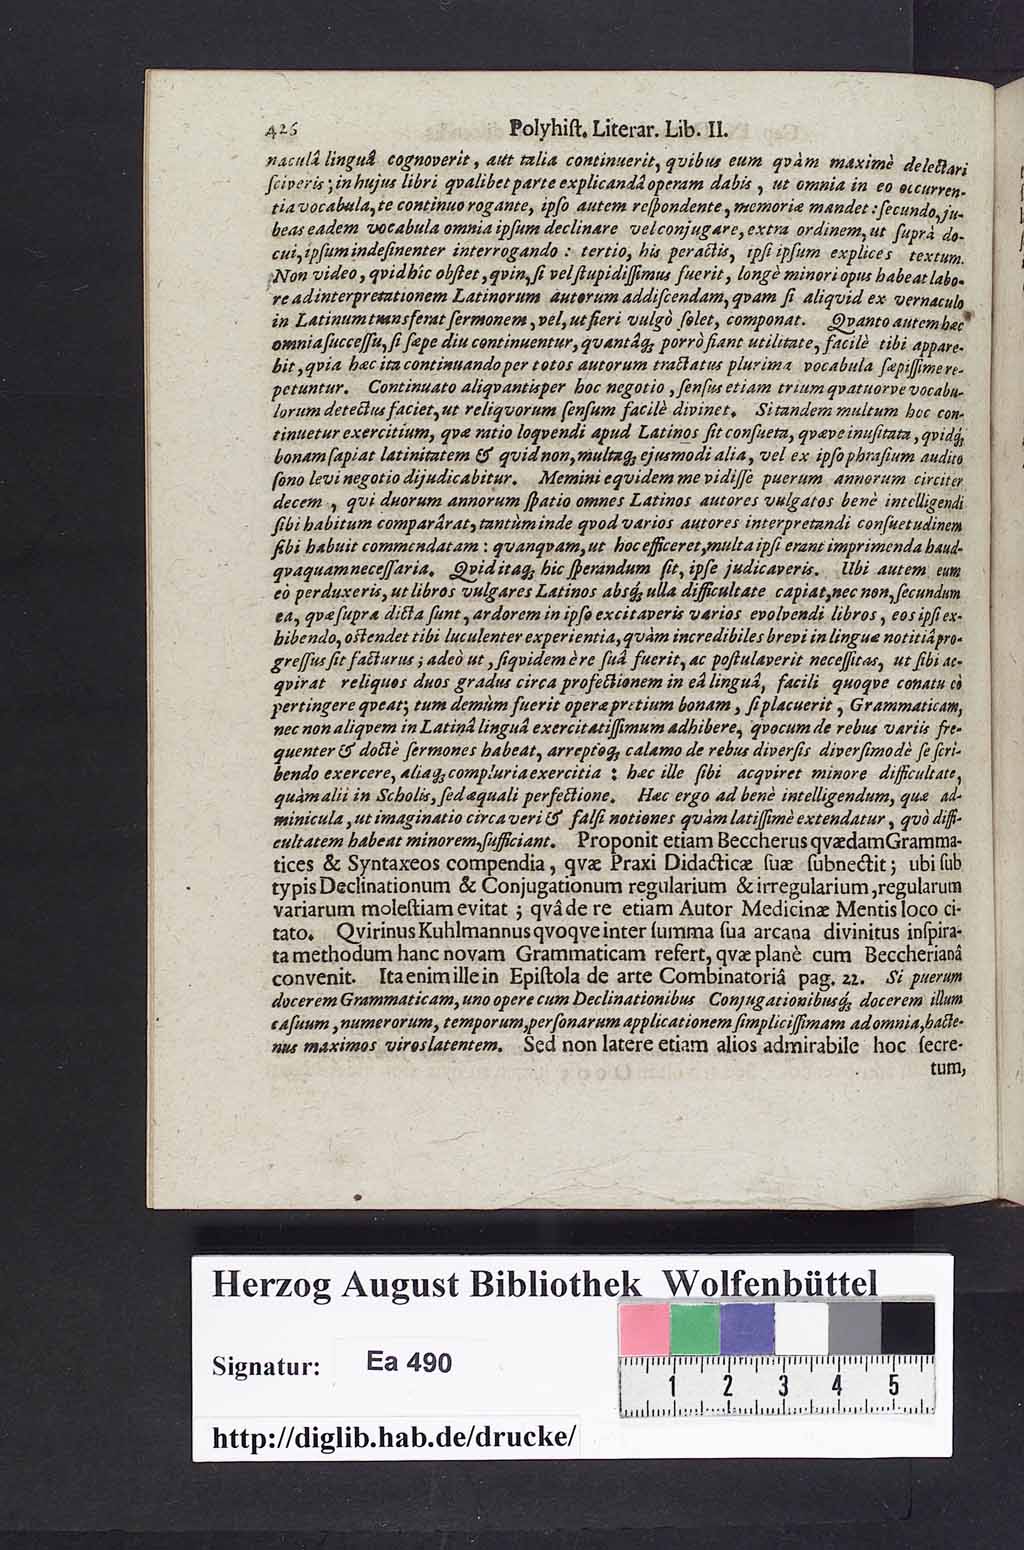 426 Polyhiſt. Literar. Lib. II.
naculâ linguâ cognoverit, aut talia continuerit, qvibus eum qvàm maximè delectari
ſciveris; in hujus libri qvalibet parte explicandâ operam dabis, ut omnia in eo occurren-
tia vocabula, te continuo rogante, ipſo autem reſpondente, memoriæ mandet: ſecundo, ju-
beas eadem vocabula omnia ipſum declinare vel conjugare, extra ordinem, ut ſuprà do-
cui, ipſum indeſinenter interrogando: tertio, his peractis, ipſi ipſum explices textum.
Non video, qvid hic obſtet, qvin, ſi vel ſtupidiſſimus fuerit, longè minori opus habeat labo-
re ad interpretationem Latinorum autorum addiſcendam, qvam ſi aliqvid ex vernaculo
in Latinum transferat ſermonem, vel, ut fieri vulgò ſolet, componat. Qvanto autem hæc
omnia ſucceſſu, ſi ſæpe diu continuentur, qvantâq; porrò fiant utilitate, facilè tibi appare-
bit, qvia hæc ita continuando per totos autorum tractatus plurima vocabula ſæpiſſime re-
petuntur. Continuato aliqvantisper hoc negotio, ſenſus etiam trium qvatuorve vocabu-
lorum detectus faciet, ut reliqvorum ſenſum facilè divinet. Si tandem multum hoc con-
tinuetur exercitium, qvæ ratio loqvendi apud Latinos ſit conſueta, qvæve inuſitata, qvidq;
bonam ſapiat latinitatem & quid non, multaq; ejusmodi alia, vel ex ipſo phraſium audito
ſono levi negotio dijudicabitur. Memini eqvidem me vidiſſe puerum annorum circiter
decem, qvi duorum annorum ſpatio omnes Latinos autores vulgatos benè intelligendi
ſibi habitum comparârat, tantùm inde qvod varios autores interpretandi conſuetudinem
ſibi habuit commendatam: qvanqvam, ut hoc efficeret, multa ipſi erant imprimenda haud-
qvaquam neceſſaria. Qvid itaq; hic ſperandum ſit, ipſe judicaveris. Ubi autem eum
eò perduxeris, ut libros vulgares Latinos absq; ulla difficultate capiat, nec non, ſecundum
ea, qvæ ſupra dicta ſunt, ardorem in ipſo excitaveris varios evolvendi libros, eos ipſi ex-
hibendo, oſtendet tibi luculenter experientia, qvàm incredibiles brevi in linguæ notitiâ pro-
greſſus ſit facturus; adeò ut, ſiqvidem è re ſuâ fuerit, ac poſtulaverit neceſſitas, ut ſibi ac-
qvirat reliquos duos gradus circa profectionem in eâ linguâ, facili quoqve conatu eò
pertingere qveat; tum demùm fuerit operæ pretium bonam, ſi placuerit, Grammaticam,
nec non aliqvem in Latinâ linguâ exercitatiſſimum adhibere, qvocum de rebus variis fre-
quenter & doctè ſermones habeat, arreptoq; calamo de rebus diverſis diverſimodè ſe ſcri-
bendo exercere, aliaq; compluria exercitia: hæc ille ſibi acqviret minore difficultate,
quàm alii in Scholis, ſed æquali perfectione. Hæc ergo ad benè intelligendum, quæ ad-
minicula, ut imaginatio circa veri & falſi notiones quàm latiſſimè extendatur, quò diffi-
cultatem habeat minorem, ſufficiant. Proponit etiam Beccherus qvædam Gramma-
tices & Syntaxeos compendia, qvæ Praxi Didacticæ ſuæ ſubnectit; ubi ſub
typis Declinationum & Conjugationum regularium & irregularium, regularum
variarum moleſtiam evitat; qvâ de re etiam Autor Medicinæ Mentis loco ci-
tato. Qvirinus Kuhlmannus qvoqve inter ſumma ſua arcana divinitus inſpira-
ta methodum hanc novam Grammaticam refert, qvæ planè cum Beccherianâ
convenit. Ita enim ille in Epiſtola de arte Combinatoriâ pag. 22. Si puerum
docerem Grammaticam, uno opere cum Declinationibus Conjugationibusq; docerem illum
caſuum, numerorum, temporum, perſonarum applicationem ſimpliciſſimam ad omnia, hacte-
nus maximos viros latentem. Sed non latere etiam alios admirabile hoc ſecre-
tum,
Herzog August Bibliothek Wolfenbüttel
Signatur: Ea 490
1 2 3 4 5
http://diglib.hab.de/drucke/